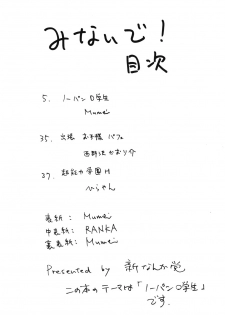 みないで!
目次
5. ノーパン〇学生
Mumei
35. 出張 お子様 パフェ
37. 超能力学園H
表紙: Mumei
中表紙: RANKA
裏表紙: Mumei
Presented by 新なんか党
この本のテーマは「ノーパン〇学生」
です.